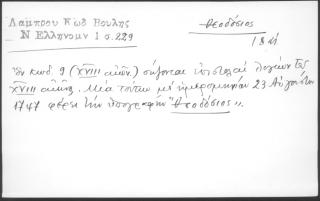 Λάμπρου Κωδ Βουλής
Ν Ελλήνομν 1 σ. 229
Θεοδόσιος
18 αἰ
Ἐν κωδ. 9 (XVIII αἰῶν.) σώζονται ἐπιστολαὶ λογίων τοῦ
XVIII αἰῶνος. Μία τούτων μὲ ἡμερομηνίαν 23 Αὐγούστου
1747 φέρει τὴν ὑπογραφὴν "Θεοδόσιος".